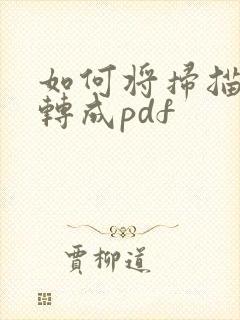 如何将掃描
轉成pdf
賈柳道